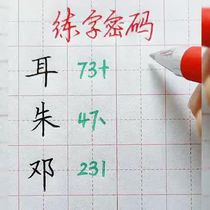 练字密码
耳 73十
朱 47乀
邓 231